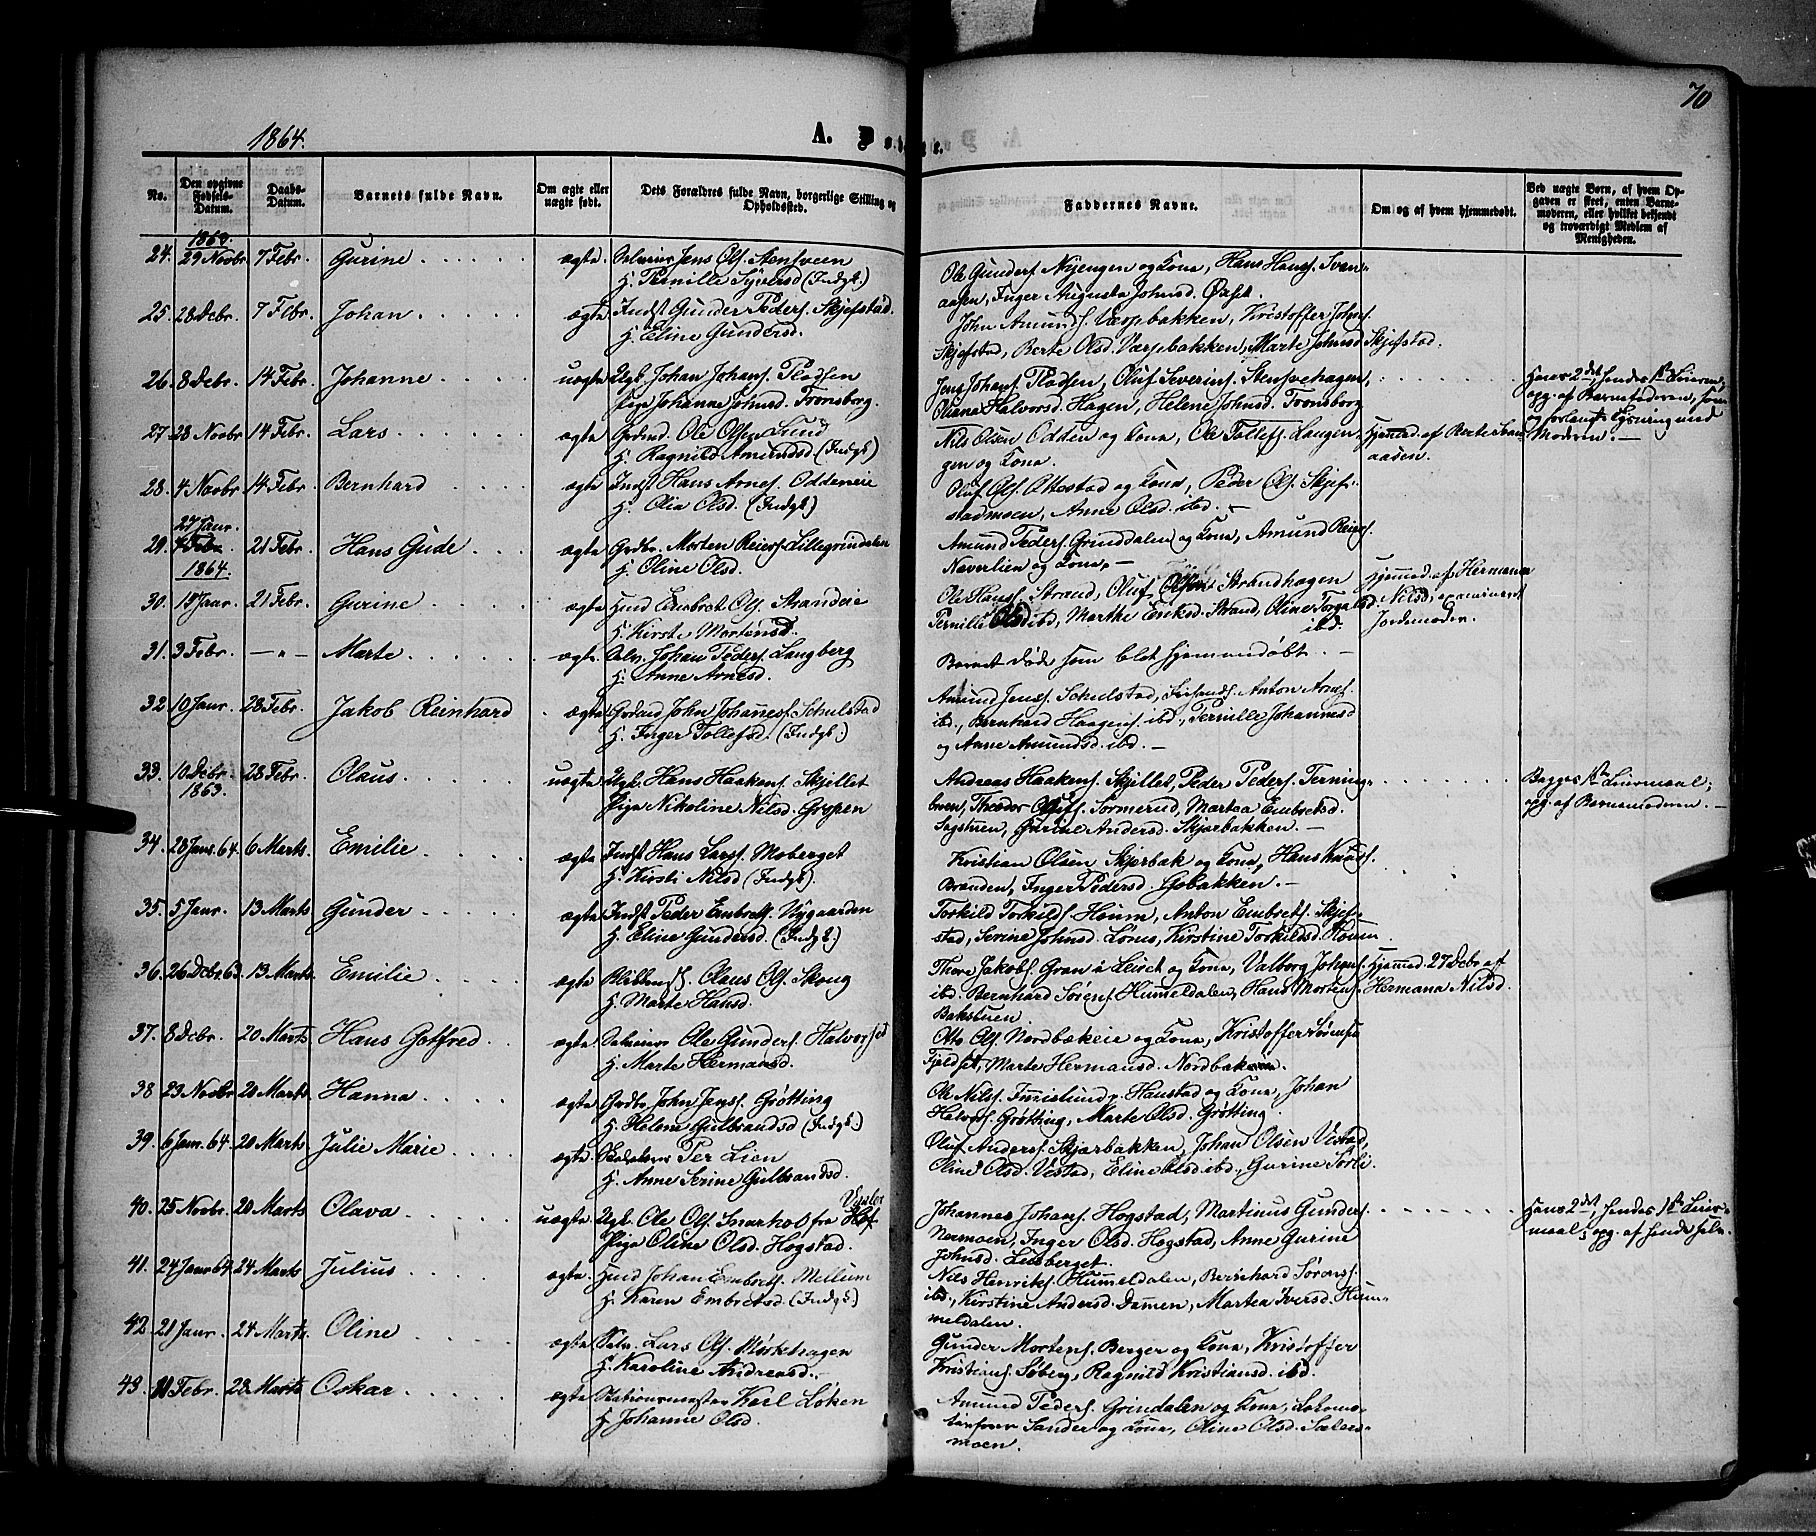 70
1864.
A. Døbte.
No.
Den opgivne Fødsels-Datum.
Daabs-Datum.
Barnets fulde Navn.
Om ægte eller uægte født.
Dets Forældres fulde Navn, borgerlige Stilling og Opholdssted.
Faddernes Navne.
Om og af hvem hjemmedøbt.
Ved uægte Børn, af hvem Opgaven er skeet, enten Barnemoderen, eller hvilket bekjendt og troværdigt Medlem af Menigheden.
1863.
24. 29 Novbr 7 Febr. Gurine ægte Selveier Jens Ols. Stensveen
H. Pernille Syversd (Indgt.)
Ole Gunders. Nyengen og Kona, Hans Hans. Svenaasen, Inger Augusta Johnsd. Øxset.
25. 28 Debr. 7 Febr. Johan ægte Indst Gunder Peders. Skjefstad.
H. Eline Gundersd.
John Amunds. Værpebakken, Kristoffer Johns.
Skjefstad, Berte Olsd. Værpebakken, Marte Johnsd Skjefstad.
26. 8 Debr. 14 Febr. Johanne uægte Ugk. Johan Johans. Pladsen
Pige Johanne Johnsd. Tronsborg.
Jens Johans. Pladsen, Oluf Severins. Stensvehagen,
Oliana Halvorsd. Hagen, Helene Johnsd. Tronsborg
Hans 2det, hendes 1ste Leierm.,
opg. af Barnefaderen, som
og forlangte Lysning med
Moderen.
27. 28 Novbr 14 Febr. Lars ægte Grdmd. Ole Olsen Lund
H. Ragnild Amundsd. (Indgt)
Nils Olsen Odden og Kona, Ole Tollefs. Laugen
gen og Kona.
Hjemmed. af Berte Svenaaden.
28. 4 Novbr 14 Febr. Bernhard ægte Indst Hans Arnes. Oddeneie
H. Olia Olsd. (Indgt.)
Oluf Ols. Ottestad og Kona, Peder Ols. Skjefstadmoen, Anne Olsd. ibd.
27 Janr.
29. 21 Febr. Hans Gude ægte Grdbr. Morten Reiers. Lillegrindalen
H. Oline Olsd.
Amund Peders. Grinddalen og Kona, Amund Reiers.
Naverlien og Kona.
1864.
30. 15 Janr. 21 Febr. Gurine ægte Husmd Embret Ols. Strandeie
H. Kirsti Mortensd.
Ole Hans. Strand, Oluf Strandhagen
Pernille Olsd ibd, Marthe Eriksd. Strand, Oline Torgalsd
ibd.
Hjemmed af Hermana
Nilsd, examineret
Jordemoder.
31. 3 Febr. Marte ægte Selv. Johan Peders. Langberg
H. Anne Arnesd.
Barnet døde som blot hjemmedøbt.
32. 10 Janr. 28 Febr. Jakob Reinhard ægte John Johannes. Schulstad
H. Inger Tollefsd. (Indgt.)
Amund Jens. Schulstad, Anton Arnes.
ibd., Bernhard Haagens. ibd., Pernille Johannesd
og Anne Amundsd. ibd.
33. 10 Debr. 1863. 28 Febr. Olaus uægte Ugk. Hans Haakens. Skjillet
Pige Nikoline Nilsd. Grypen
Andreas Haakens. Skjillet, Peder Peders. Terningmoen, Theodor Sørmerud, Martea Embretsd.
Sagstuen, Gurine Andersd. Skjærbakken.
Begges 1ste Leiermaal;
opg. af Barnemoderen.
34. 28 Janr. 64. 6 Marts. Emilie ægte Indst Hans Lars. Moberget
H. Kirsti Nilsd (Indgt).
Kristian Olsen Skjærbæk og Kona, Hans Knuds.
Brænden, Inger Pedersd. Gobakken.
35. 5 Janr. 13 Marts Gunder ægte Indst Peder Embrets. Nygaarden
H. Eline Gundersd. (Indgt.)
Torkild Torkilds. Houm, Anton Embrets. Skjefstad, Serine Johnsd. Lønes, Kirstine Torkildsd. Houm.
36. 26 Debr 63. 13 Marts. Emilie ægte Olaus Ols. Skoug
H. Marte Hansd.
Thore Jakobs. Gran i Leiret og Kona, Valborg Johans.
ibd. Bernhard Sørens. Hummeldalen, Hans Mortens.
Bakstuen.
Hjemmed. 27 Debr af
Hermana Nilsd.
37. 8 Debr. 20 Marts Hans Gotfred ægte Selveier Ole Gunders. Halvorset
H. Marte Hermansd.
Otto Ols. Nordbækeie og Kona, Kristoffer Sørens.
Fjeldset, Marte Hermansd. Nordbækeie.
38 23 Novbr 20 Marts Hanna ægte Grdbr John Jens. Grøtting
H. Helene Gulbrandsd (Indgt.)
Ole Nils. Furuslund p. Haustad og Kona, Johan
Halvors. Grøtting, Marte Olsd. Grøtting.
39. 6 Janr. 64. 20 Marts. Julie Marie ægte Per Lien
H. Anne Serine Gulbrandsd.
Oluf Anders. Skjærbakken, Johan Olsen Vestad,
Oline Olsd. Vestad, Eline Olsd ibd., Gurine Sørli.
40. 25 Novbr. 20 Marts Olava uægte Ugk. Ole Ols. Snarhol fra Vinger
Pige Oline Olsd. Hogstad.
Johannes Johans. Hogstad, Martinus Gunders.
Nermoen, Inger Olsd. Hogstad, Anne Gurine
Johnsd. Lusberget.
Hans 2det, hendes 1ste Leiermaal; opg. af hende selv.
41. 24 Janr 64. 24 Marts Julius ægte Husmd Johan Embrets. Mellum
H. Karen Embretsd. (Indgt.)
Nils Henriks. Hummeldalen, Bernhard Sørens.
ibd., Kirstine Andersd. Dammen, Martea Iversd. Hummeldalen.
42 21 Janr. 24 Marts. Oline ægte Selv. Lars Ols. Mørkhagen
H. Karoline Andreasd.
Gunder Mortens. Berger og Kona, Kristoffer
Kristians. Søberg, Ragnild Kristiansd. ibd.
43. 11 Febr. 28 Marts Oskar ægte Stationsmester Karl Løken
H. Johanne Olsd.
Amund Peders. Grindalen og Kona, Lokomotivfører Sander og Kona, Oline Olsd. Sætersmoen.